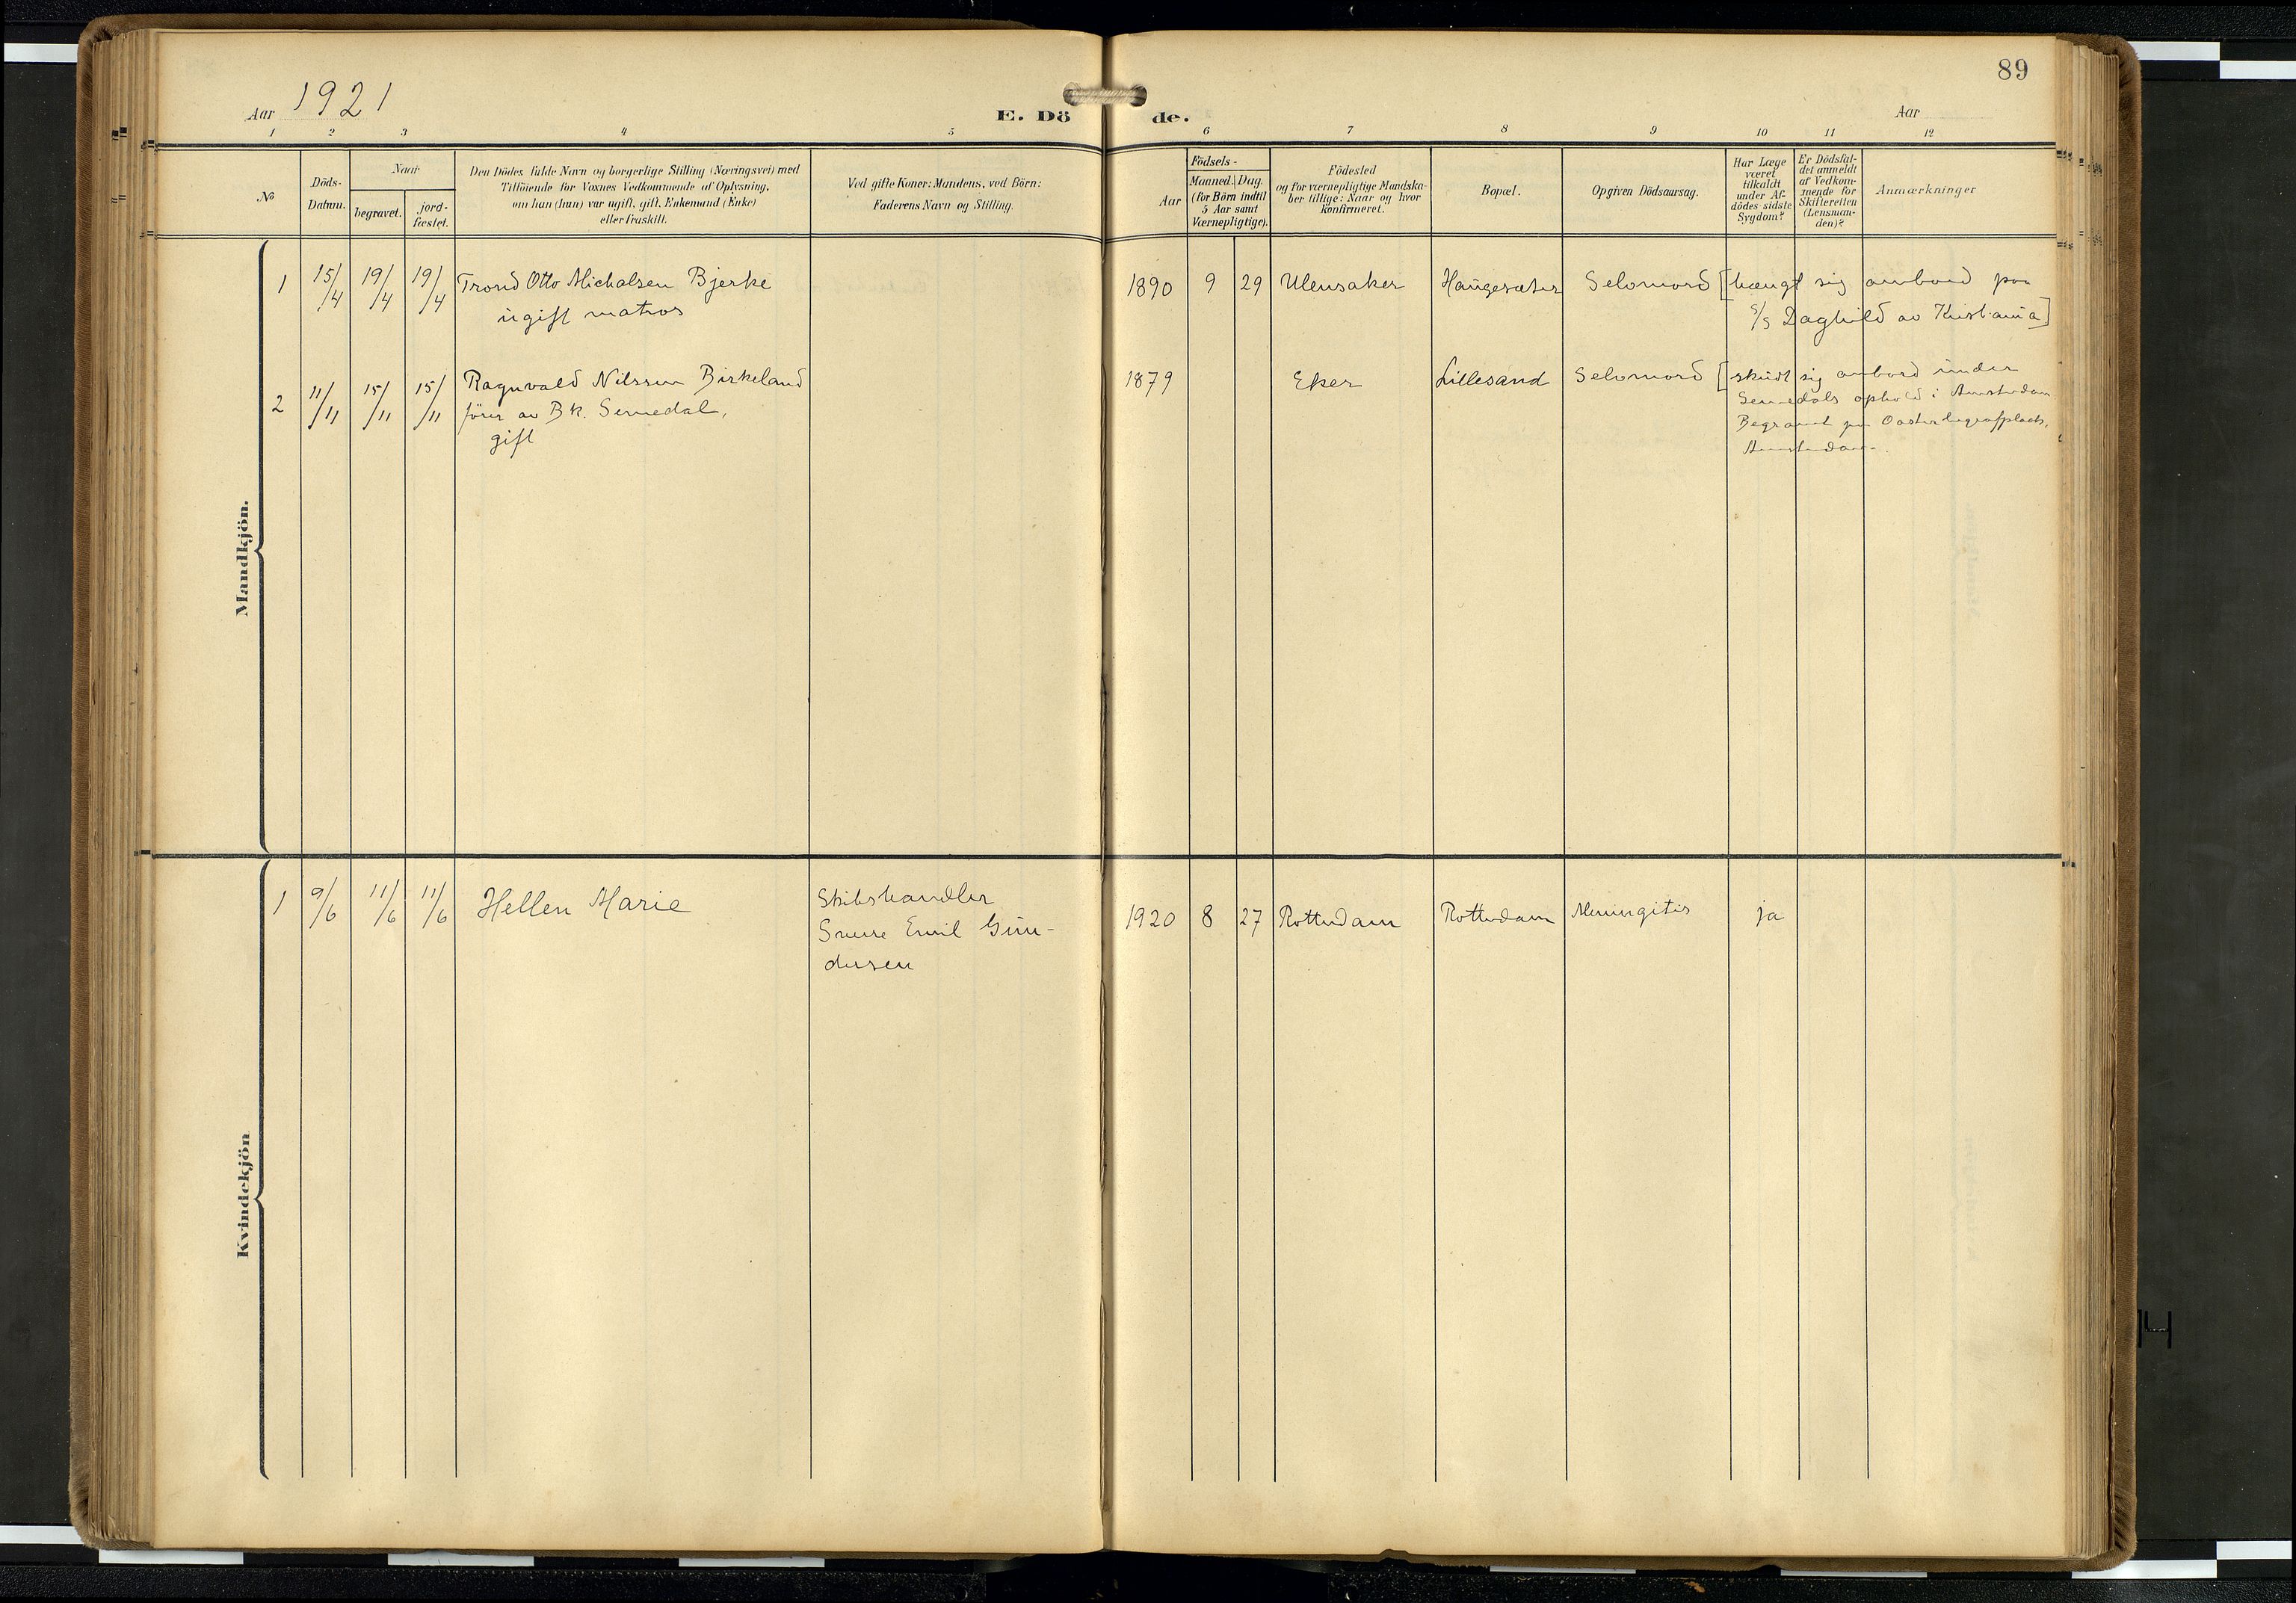 89
Aar 1921
E. Dö de.
Aar
1 2 3 4 5 6 7 8 9 10 11 12
No
Döds-
Datum.
Naar
begravet.
jord-
fæstet.
Den Dödes fulde Navn og borgerlige Stilling (Næringsvei) med
Tilföiende for Voxnes Vedkommende af Oplysning,
om han (hun) var ugift, gift, Enkemand (Enke)
eller fraskilt.
Ved gifte Koner: Mandens, ved Börn:
Faderens Navn og Stilling.
Födsels-
Aar
Maaned. Dag.
(for Börn indtil
5 Aar samt
Værnepligtige).
Födested
og for værnepligtige Mandska-
ber tillige: Naar og hvor
konfirmeret.
Bopæl.
Opgiven Dödsaarsag.
Har Læge
været
tilkaldt
under Af-
dödes sidste
Sygdom?
Er Dödsfal-
det anmeldt
af Vedkom-
mende for
Skifteretten
(Lensman-
den)?
Anmærkninger
Mandkjön.
1 15/4 19/4 19/4 Trond Otto Michalsen Bjerke 1890 9 29 Ulensaker Haugesæter Selvmord [hængt sig ombord paa
ugift matros S/S Daghild av Kristiania]
2 11/11 15/11 15/11 Ragnvald Nilssen Birkeland 1879 Eker Lillesand Selvmord [skudt sig ombord under
förer av Bk. Semedal, Semedals ophold i Amsterdam
gift Begravet paa Ooster
Amsterdam.
Kvindekjön
1 9/6 11/6 11/6 Hellen Marie Skibshandler 1920 8 27 Rotterdam Rotterdam Meningitis ja
Sverre Emil Gun-
dersen